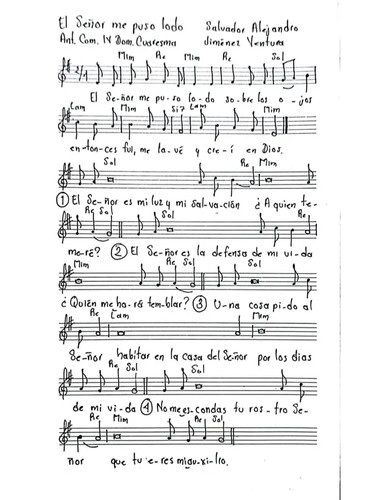 El Señor me puso lodo Salvador Alejandro
Ant. Com. IV Dom. Cuaresma Jiménez Ventura
Mim Re Mim Re Sol
2/4
El Se-ñor me pu-so lo-do so-bre los o-jos
Lam Mim Si7 Lam Mim
en-ton-ces fui, me la-vé y cre-í en Dios.
Sol Re Mim
① El Se-ñor es mi luz y mi Sal-va-ción ¿A quien te-
Re Sol Sol
me-ré? ② El Se-ñor es la defensa de mi vi-da
Mim Re Sol Sol
¿Quién me ha-rá tem-blar? ③ U-na cosa pi-do al
Re Lam Mim
Se-ñor habitar en la casa del Señor por los días
Re Sol Sol
de mi vi-da ④ No me es-condas tu ros-tro Se-
Re Mim Re Sol
ñor que tu e-res mi au-xi-lio.